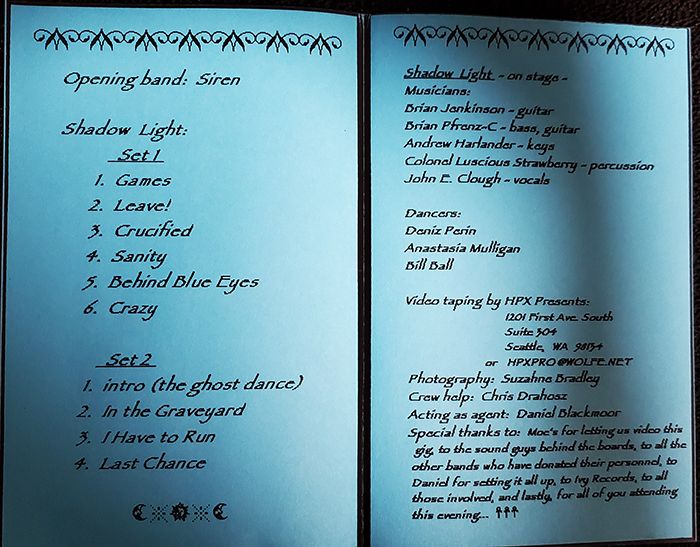 Opening band: Siren
Shadow Light:
Set 1
1. Games
2. Leave!
3. Crucified
4. Sanity
5. Behind Blue Eyes
6. Crazy
Set 2
1. intro (the ghost dance)
2. In the Graveyard
3. I Have to Run
4. Last Chance
Shadow Light - on stage -
Musicians:
Brian Jenkinson - guitar
Brian Pfrenz-C - bass, guitar
Andrew Harlander - keys
Colonel Luscious Strawberry - percussion
John E. Clough - vocals
Dancers:
Deniz Perin
Anastasia Mulligan
Bill Ball
Video taping by HPX Presents:
1201 First Ave. South
Suite 304
Seattle, WA 98134
or HPXPRO@WOLFE.NET
Photography: Suzanne Bradley
Crew help: Chris Drahosz
Acting as agent: Daniel Blackmoor
Special thanks to: Moe's for letting us video this
gig, to the sound guys behind the boards, to all the
other bands who have donated their personnel, to
Daniel for setting it all up, to Ivy Records, to all
those involved, and lastly, for all of you attending
this evening...